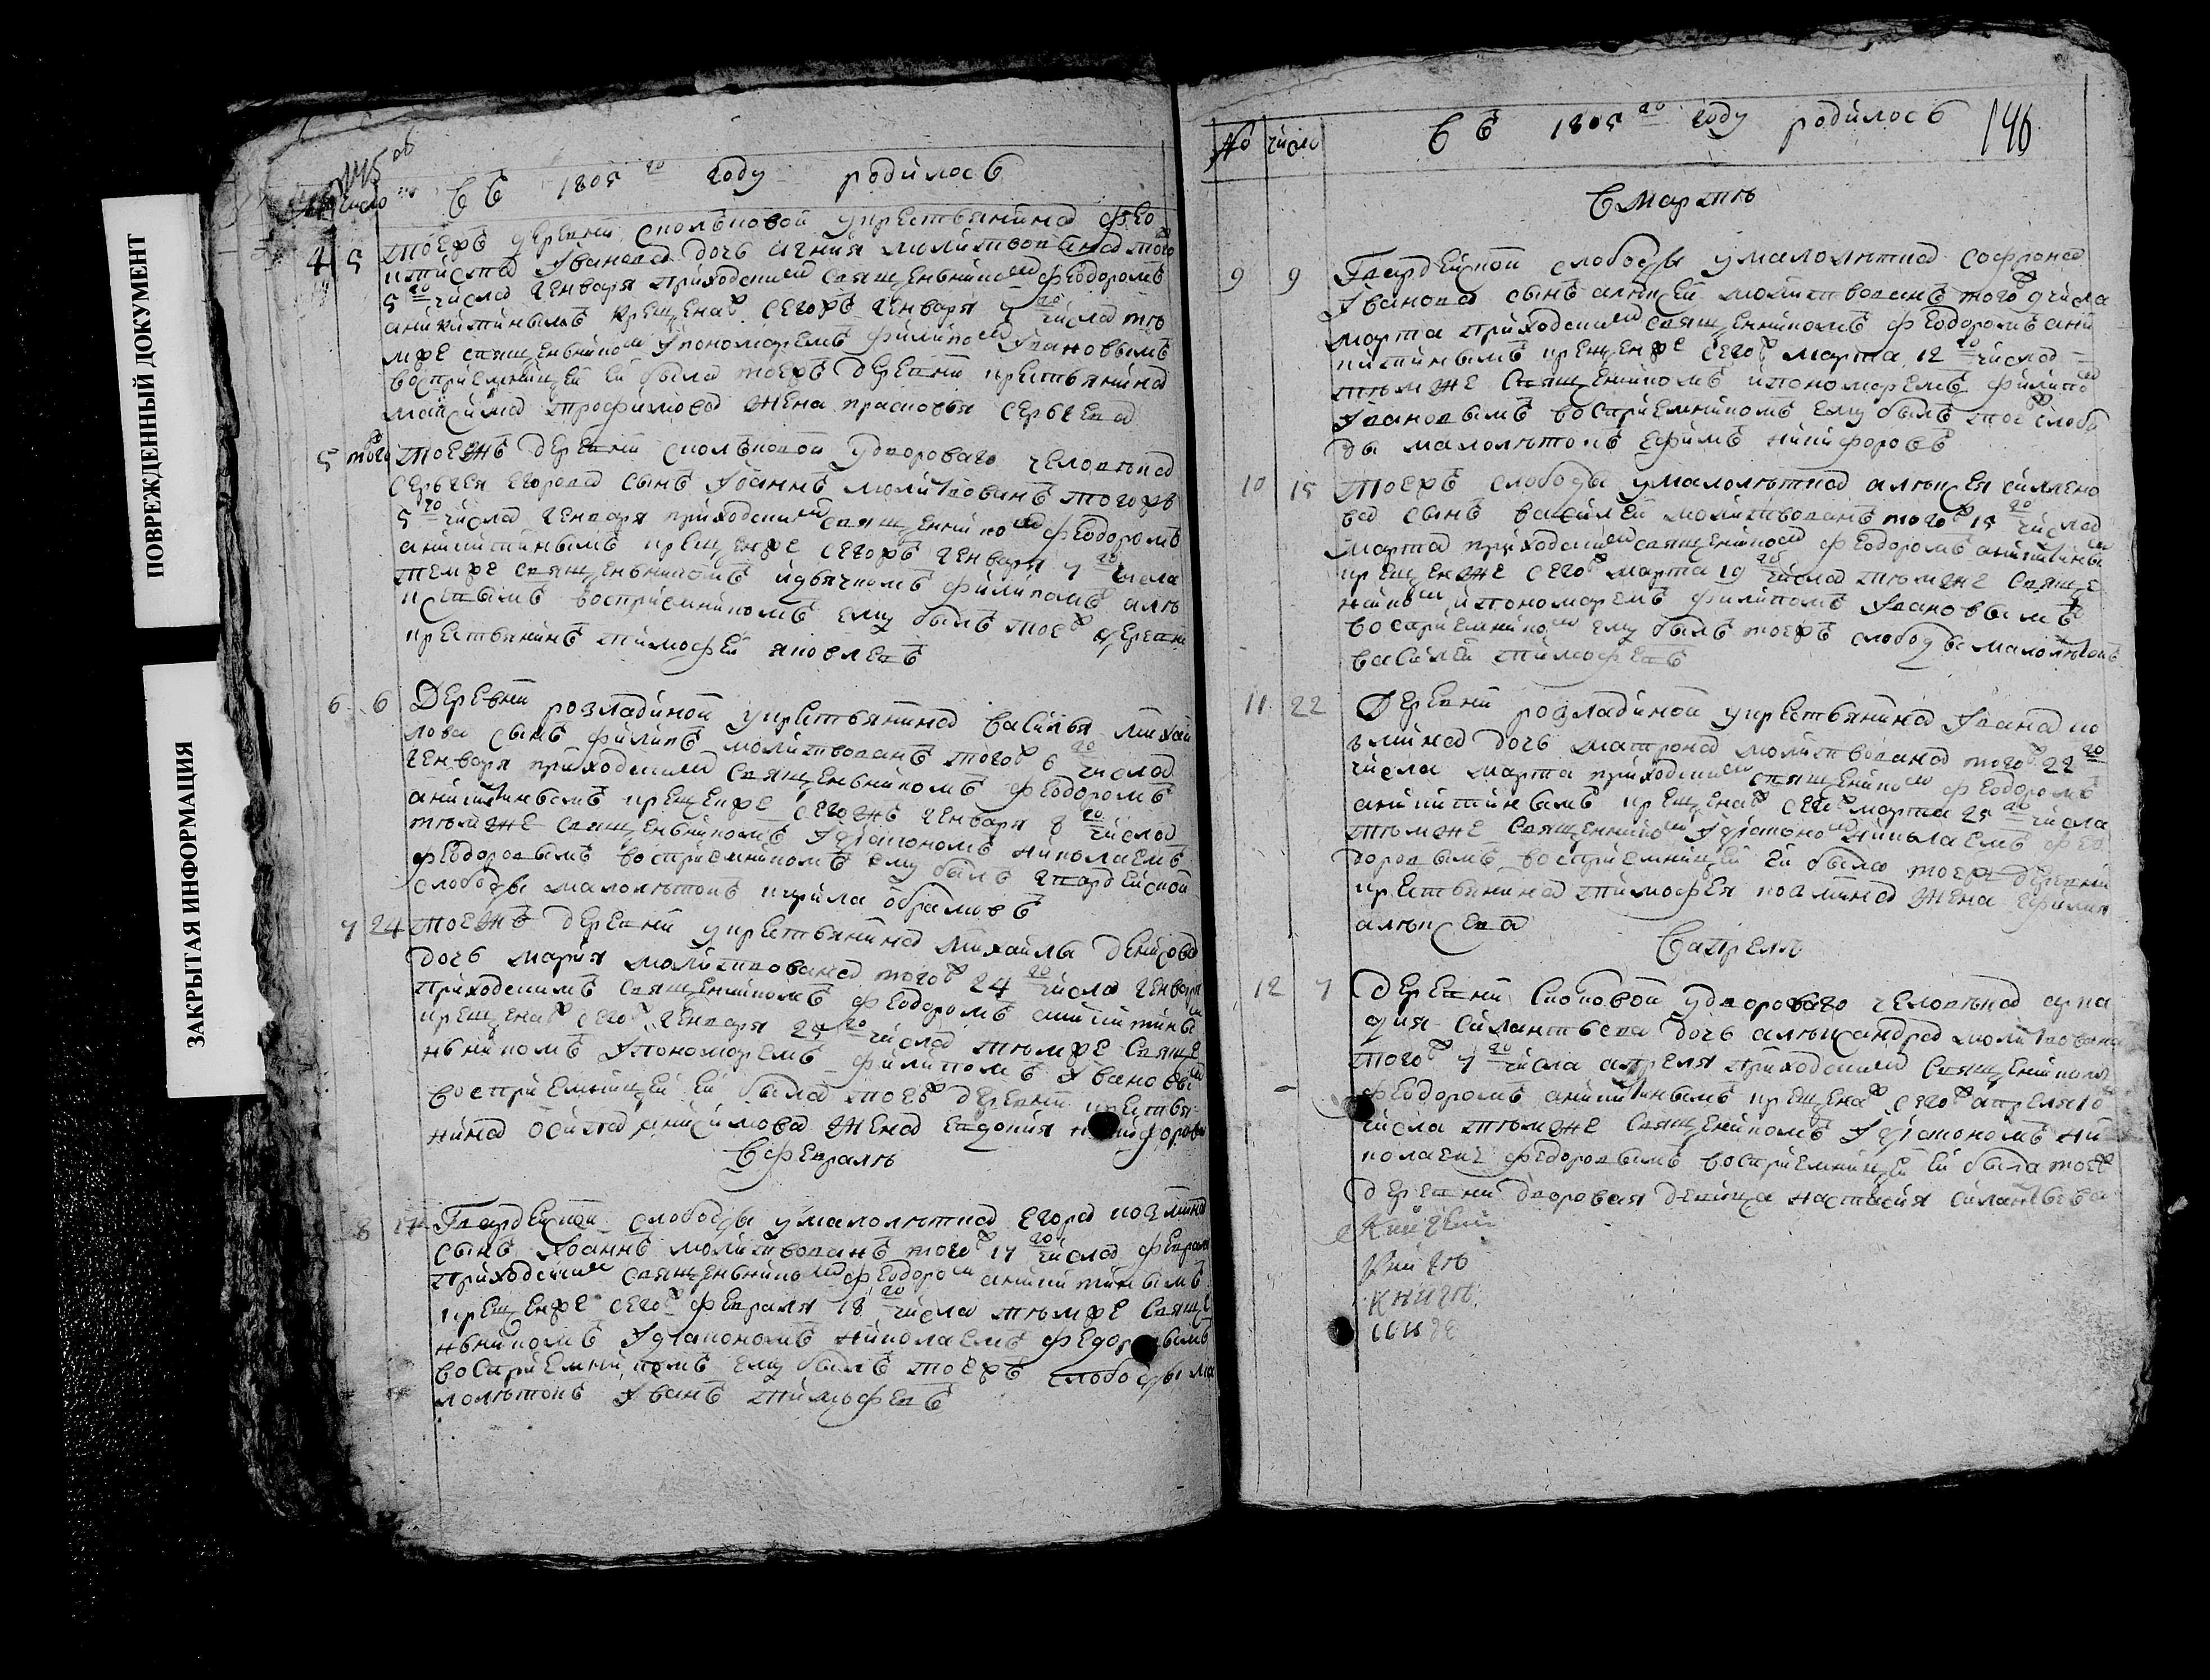 ПОВРЕЖДЕННЫЙ ДОКУМЕНТ
ЗАКРЫТАЯ ИНФОРМАЦИЯ
145 об
число въ 1805 го году родилось
4 5 тоежъ деревни сполъновой укрестьянина фео
ктиста Iванова дочь агния молитвована того
5 го числа генваря приходским священьником феодоромъ
аникитинымъ крещенаж сегожъ генваря 7 го числа тѣ
мже священьником Iпономаремъ филипом Iвановымъ
восприемницей ей была тоежъ деревни крестьянина
максима трофимова жена прасковья сергеева
5 того тоежъ деревни сполъновой удвороваго человѣка
сергея егорова сынъ Iоаннъ молитвованъ тогожъ
5 го числа генваря приходским священником феодоромъ
аникитинымъ крещенже сегожъ генваря 7 го числа
темже священьникомъ идьячкомъ филипомъ алѣ
ксевымъ восприемникомъ ему былъ тоеж деревни
крестьянинъ тимофей яковлевъ
6 6 Деревни розладиной укрестьянина василья михаи
лова сынъ филипъ молитвованъ тогож 6 го числа
генваря приходским священьникомъ феодоромъ
аникитинымъ крещенже сегожъ генваря 8 го числа
тѣмже священьникомъ Iдiакономъ николаемъ
феодоровымъ восприемникомъ ему былъ гвардейской
слободы малолѣтокъ кирила абрамовъ
7 24 тоежъ деревни укрестьянина михайлы денисова
дочь мария молитвована тогож 24 го числа генваря
приходскимъ священникомъ феодоромъ аникитины
крещенаж сегож генваря 25 го числа тѣмже священ
ньникомъ Iпономаремъ филипомъ Iвановы
восприемницей ей была тоеж деревни крестья
нина осипа анисимова жена евдокия никифорова
Вфевралѣ
8 17 Гвардейской слободы умалолѣтка егора козмина
сынъ Iоаннъ молитвованъ тогож 17 го числа февраля
приходским священьником феодором аникитинымъ
крещенже сегож февраля 18 го числа тѣмже священ
ньникомъ Iдiакономъ николаемъ федоровымъ
восприемникомъ ему былъ тоежъ слободы ма
лолѣтокъ Iванъ тимофеевъ
№ число въ 1805 го году родилось 146
Вмартѣ
9 9 Гвардейской слободы умалолѣтка софрона
Iванова сынъ алексей молитвованъ тогож 9 числа
марта приходским священникомъ феодоромъ ани
китинымъ крещенже сегож марта 12 го числа
тѣмже священникомъ ипономаремъ филипом
Iвановымъ восприемникомъ ему былъ тоеж слобо
ды малолѣтокъ ефимъ никифоровъ
10 15 Тоежъ слободы умалолѣтка алѣксея симено
ва сынъ василей молитвованъ тогож 15 го числа
марта приходским священником феодоромъ аникитины
крещенже сегож марта 19 го числа тѣмже священ
ником ипономаремъ филипомъ Iвановымъ
восприемником ему былъ тоежъ слободы малолѣтокъ
василей тимофеевъ
11 22 Деревни розладиной укрестьянина Iвана ко
змина дочь матрона молитвована тогож 22 го
числа марта приходским священником феодоромъ
аникитинымъ крещенаж сегож марта 25 го числа
тѣмже священником Iдiаконом николаемъ фео
доровымъ восприемницей ей была тоеже деревни
крестьянина тимофея козмина жена ефимия
алѣксева
Вапрелѣ
12 7 Деревни споповой удвороваго человѣка арка
дия силантьева дочь алѣксандра молитвована
тогож 7 го числа апреля приходским священником
феодоромъ аникитинымъ крещенаж сегож апреля 10
числа тѣмже священникомъ Iдiакономъ ни
колаемъ федоровымъ восприемницей ей была тоеж
деревни дворовая девица настасия силантьева
книгѣ